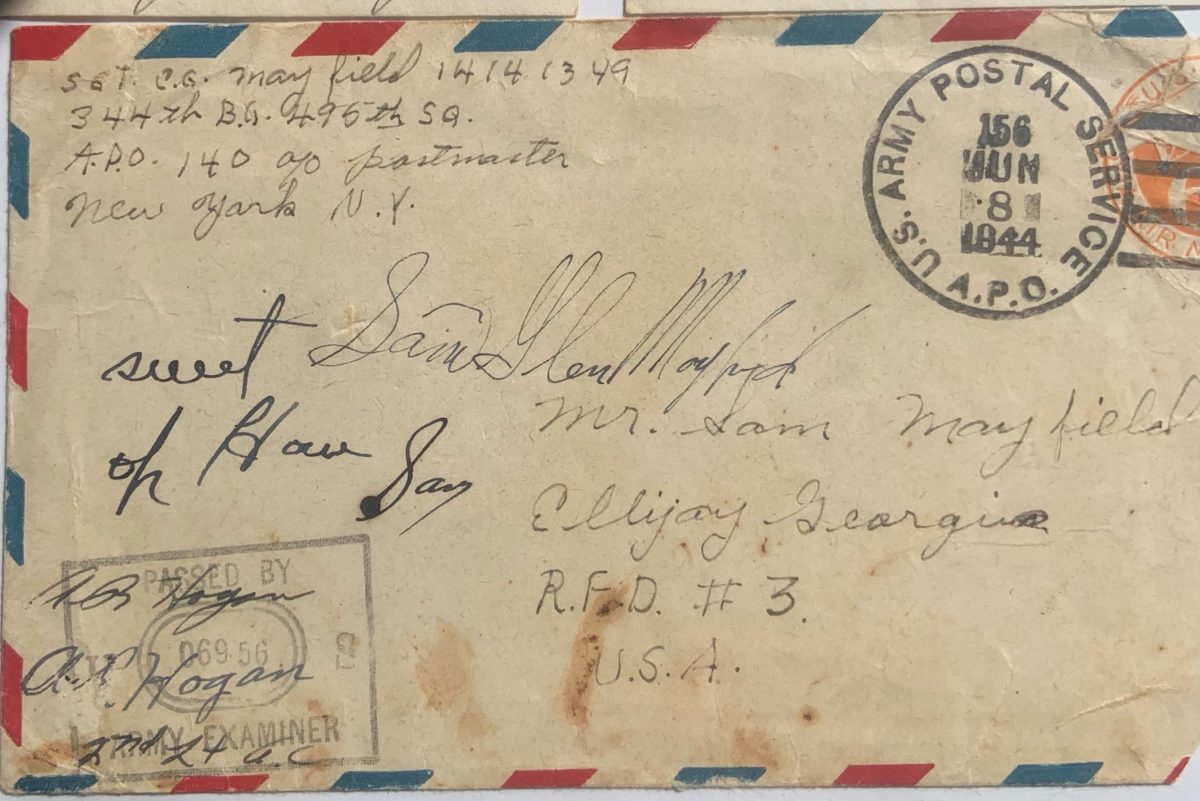 SGT. C.G. Mayfield 14141349
344th B.G. 495th SQ.
A.P.O. 140 c/o postmaster
New York N.Y.
U.S. ARMY POSTAL SERVICE
156
JUN
8
1944
A.P.O.
Sam Glen Mayfield
sweet
of How Say
Mr. Sam Mayfield
Ellijay Georgia
R.F.D. # 3.
U.S.A.
PASSED BY
Hogan
06956
A.P. Hogan
ARMY EXAMINER
2nd Lt A.C